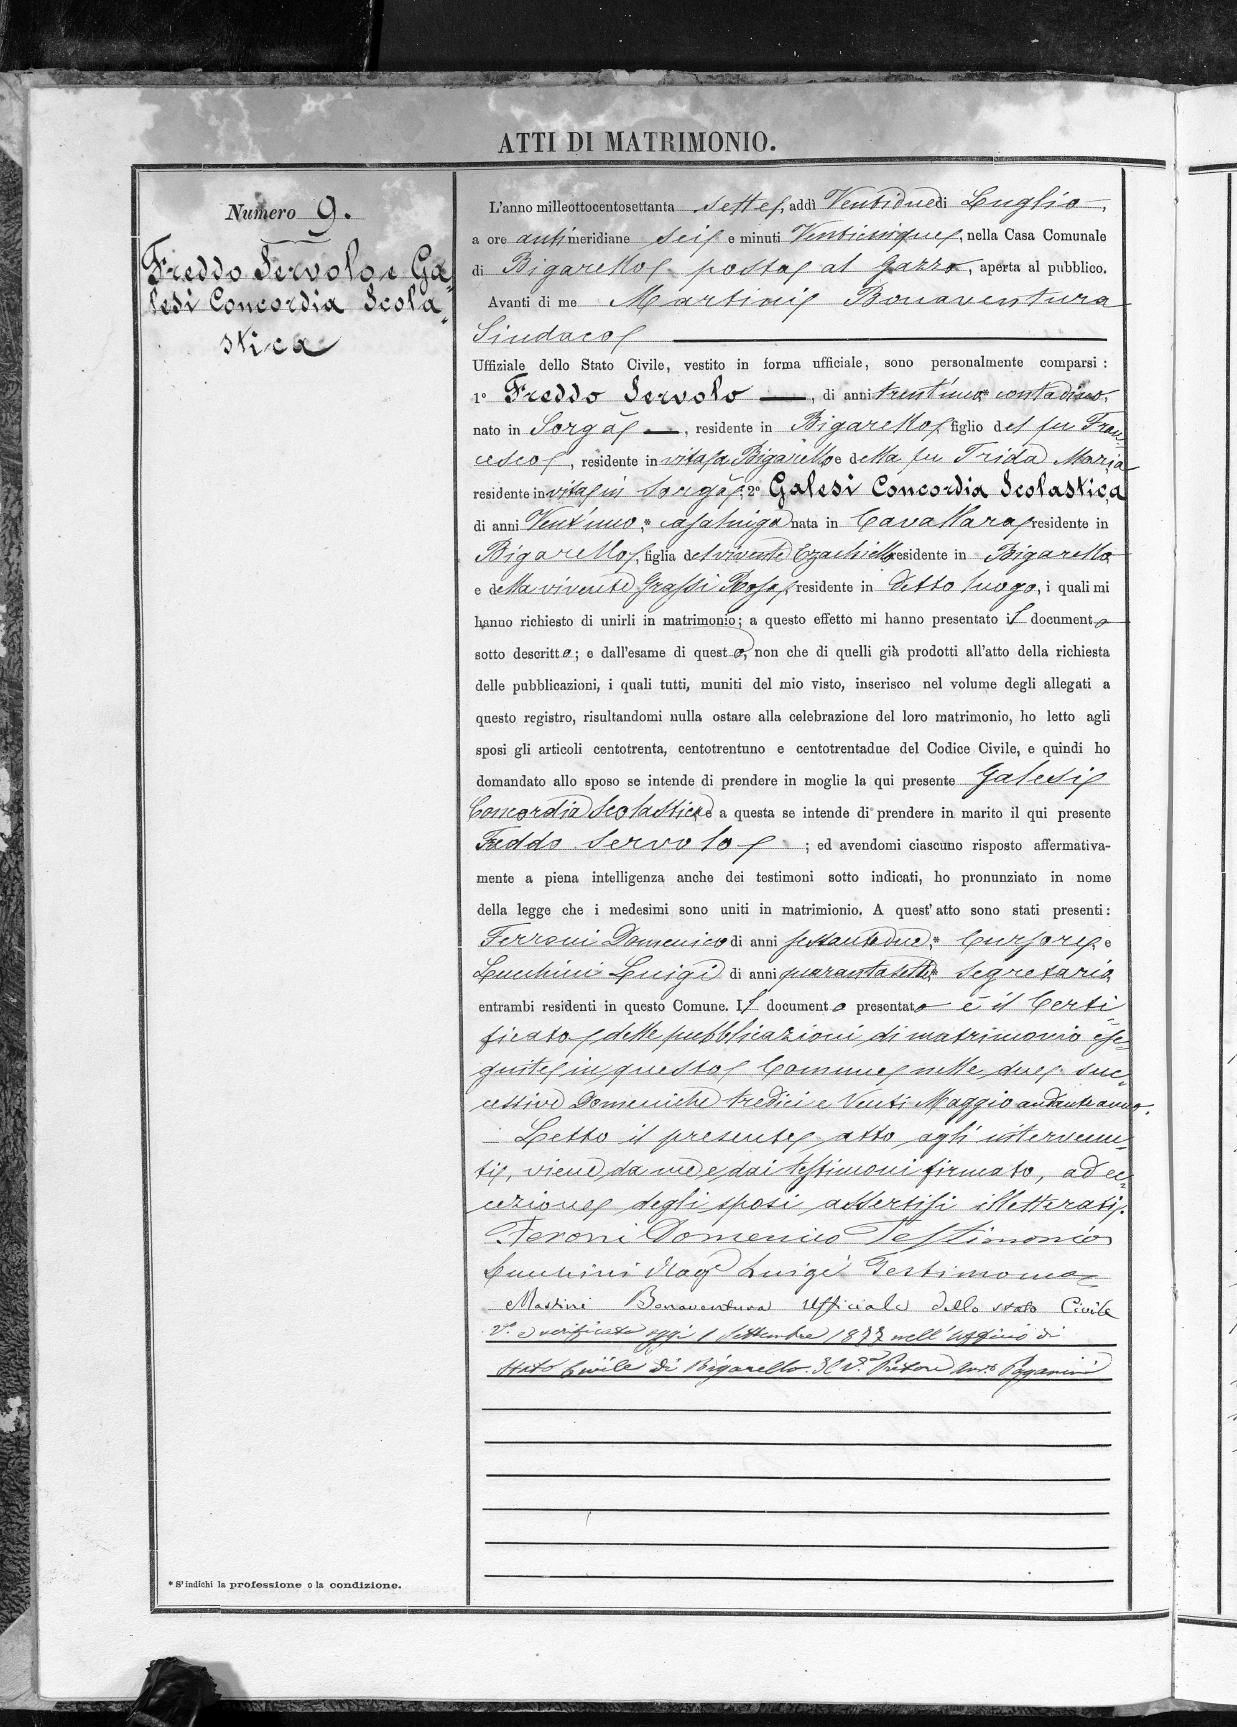 ATTI DI MATRIMONIO.
Numero 9.
Freddo Servolo e Ga-
lesi Concordia Scola-
stica
L'anno milleottocentosettanta sette, addì Ventidue di Luglio,
a ore antimeridiane sei e minuti Venticinque, nella Casa Comunale
di Bigarello posta al Gazzo, aperta al pubblico.
Avanti di me Martini Bonaventura
Sindaco
Uffiziale dello Stato Civile, vestito in forma ufficiale, sono personalmente comparsi:
1° Freddo Servolo, di anni trentuno* contadino,
nato in Sorgà, residente in Bigarello, figlio del fu Fran-
cesco, residente in vita a Bigarello e della fu Frida Maria
residente in vita in Sorgà; 2° Galesi Concordia Scolastica
di anni Ventuno,* casalinga nata in Cavallara residente in
Bigarello, figlia del vivente Ezechiello residente in Bigarello
e della vivente Grassi Rosa, residente in detto luogo, i quali mi
hanno richiesto di unirli in matrimonio; a questo effetto mi hanno presentato il documento
sotto descritto; e dall'esame di questo, non che di quelli già prodotti all'atto della richiesta
delle pubblicazioni, i quali tutti, muniti del mio visto, inserisco nel volume degli allegati a
questo registro, risultandomi nulla ostare alla celebrazione del loro matrimonio, ho letto agli
sposi gli articoli centotrenta, centotrentuno e centotrentadue del Codice Civile, e quindi ho
domandato allo sposo se intende di prendere in moglie la qui presente Galesi
Concordia Scolastica e a questa se intende di prendere in marito il qui presente
Freddo Servolo; ed avendomi ciascuno risposto affermativa-
mente a piena intelligenza anche dei testimoni sotto indicati, ho pronunziato in nome
della legge che i medesimi sono uniti in matrimionio. A quest'atto sono stati presenti:
Ferroni Domenico di anni sessantadue,* Cursore, e
Lucchini Luigi di anni quarantasette,* Segretario
entrambi residenti in questo Comune. Il documento presentato è il Certi-
ficato delle pubblicazioni di matrimonio ese-
guite in questo Comune nelle due suc-
cessive Domeniche tredici e Venti Maggio andante anno.
Letto il presente atto agli intervenu-
ti, viene da me e dai testimoni firmato, ad ec-
cezione degli sposi assertisi illetterati.
Feroni Domenico Testimonio
Lucchini Rag Luigi Testimonio
Martini Bonaventura Ufficiale dello stato Civile
V° e verificato oggi 1 Settembre 1877 nell'Uffizio di
Stato Civile di Bigarello. Il V. Pretore Paganini
* S'indichi la professione o la condizione.